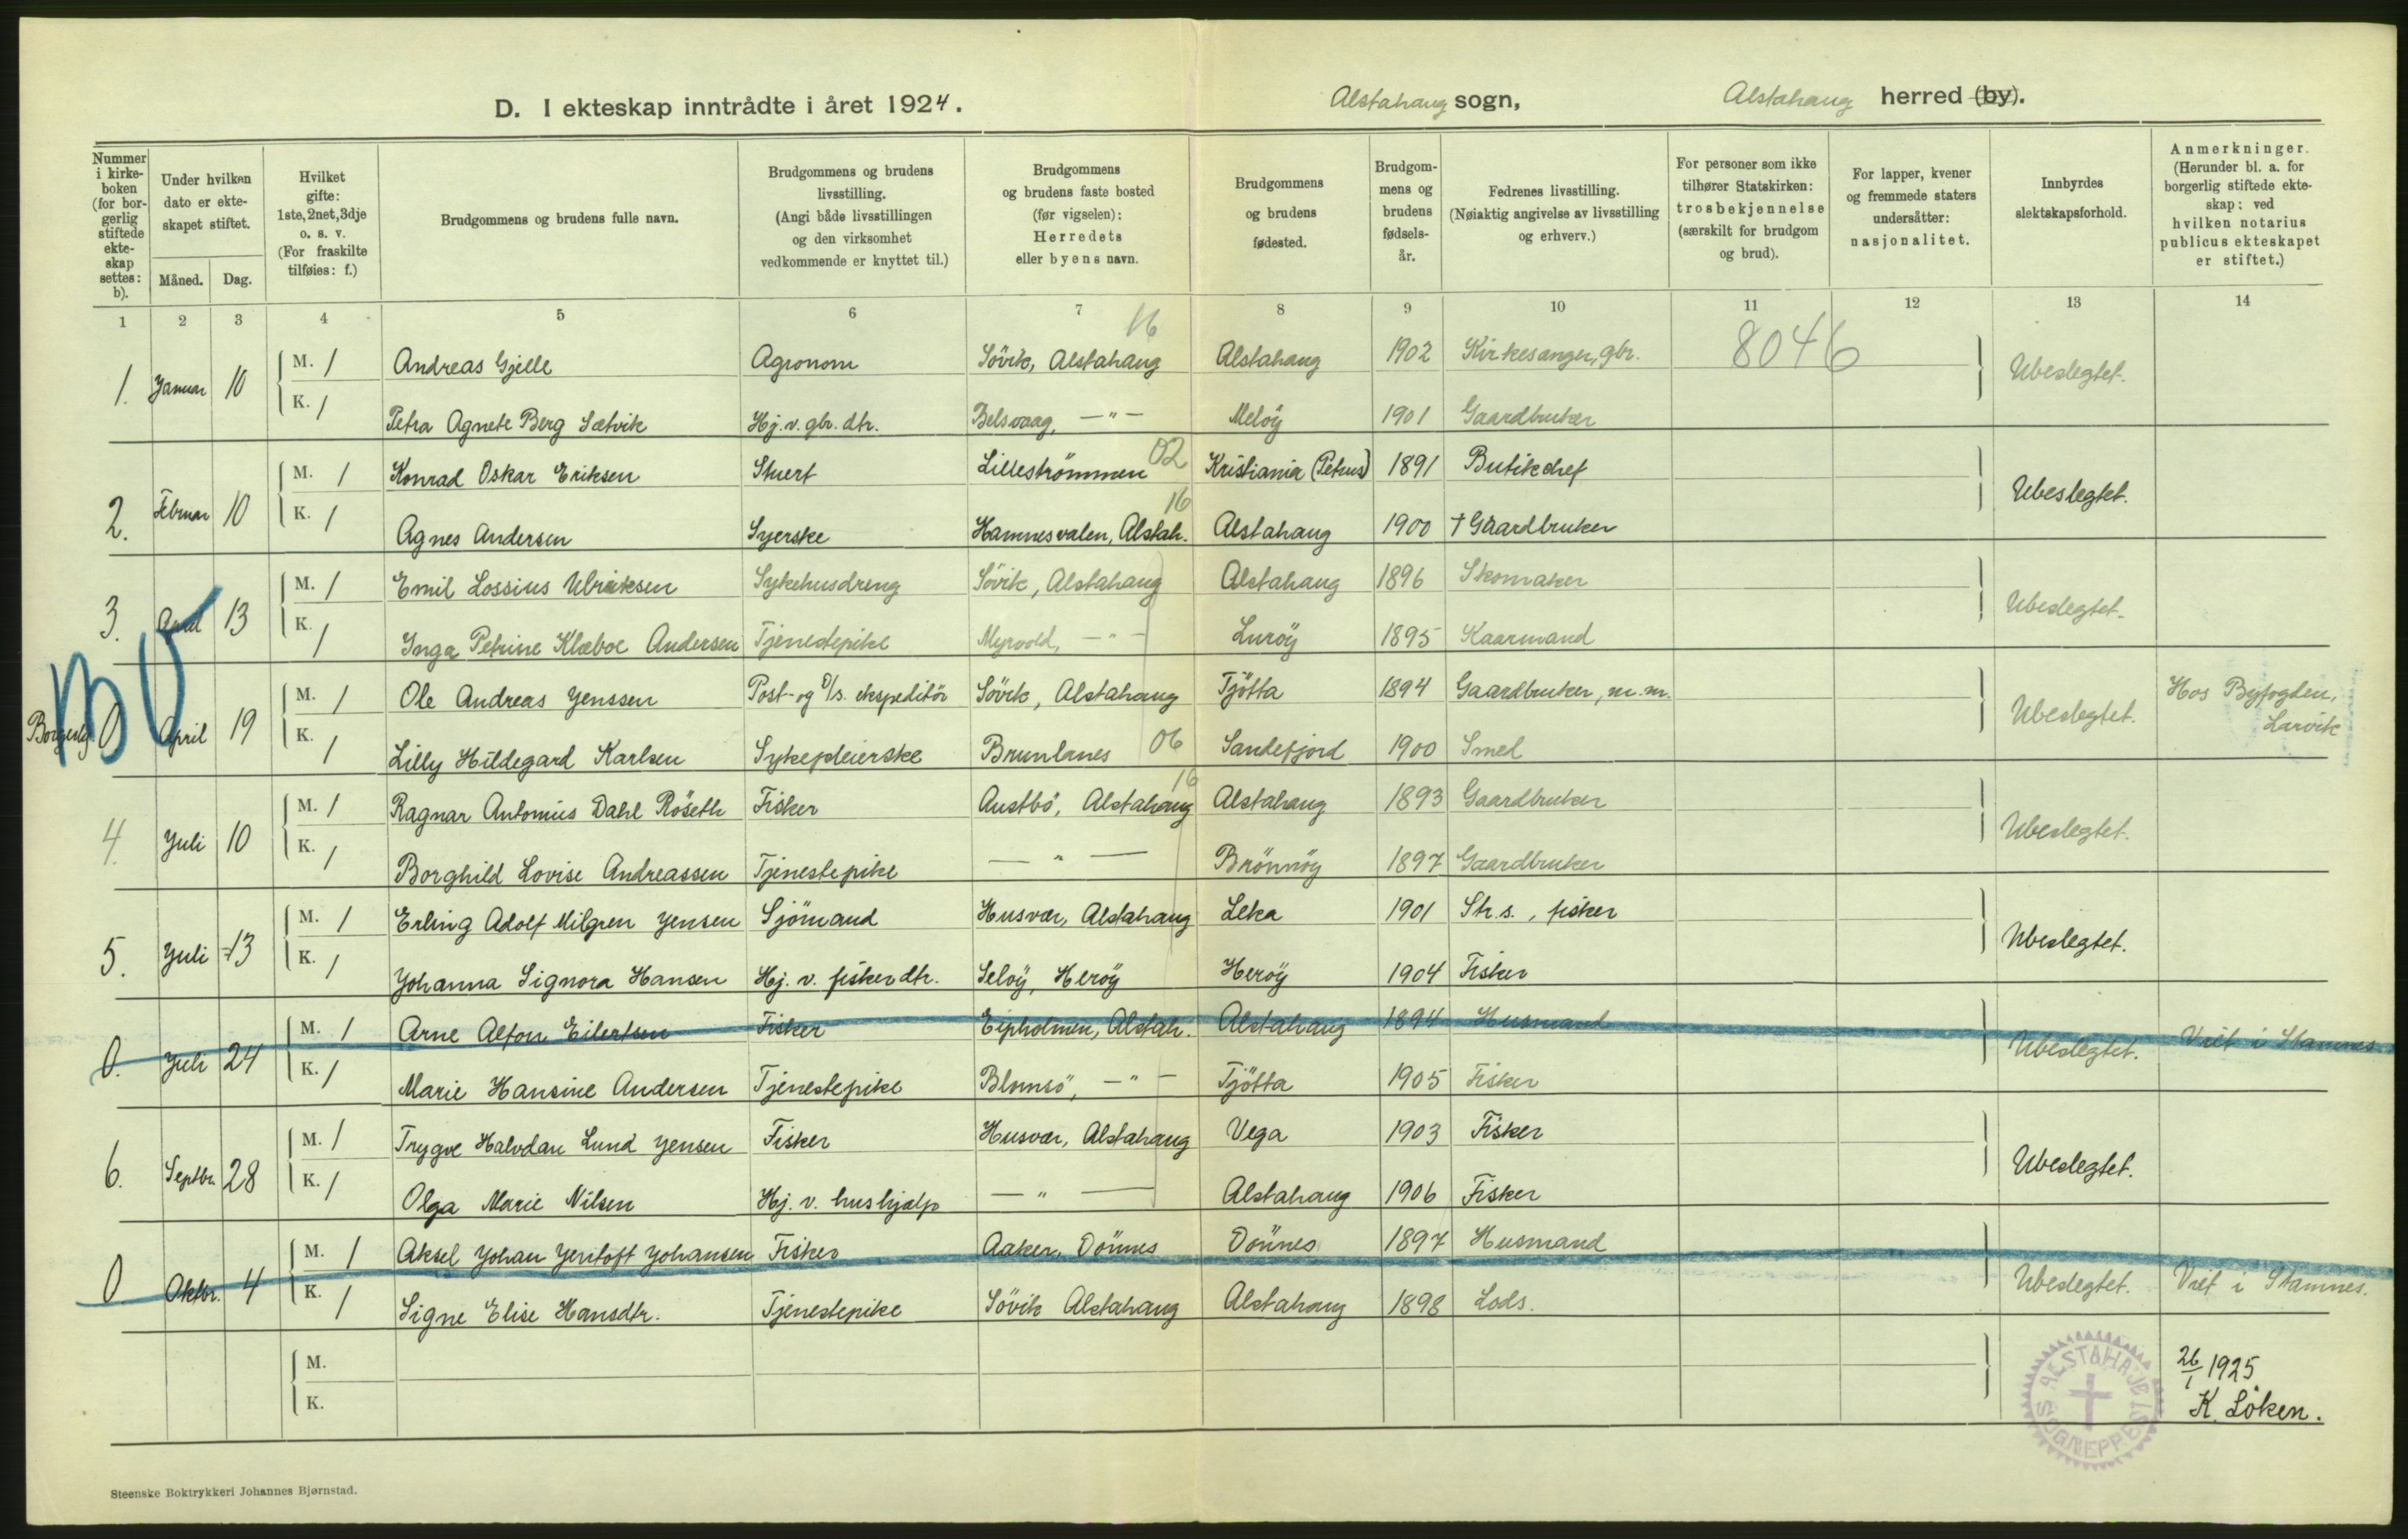 D. I ekteskap inntrådte i året 1924.
Alstahaug sogn,
Alstahaug herred (by).
Nummer i kirkeboken (for borgerlig stiftede ekteskap settes: b).
Under hvilken dato er ekteskapet stiftet.
Måned. Dag.
Hvilket gifte: 1ste, 2net, 3dje o. s. v. (For fraskilte tilføies: f.)
Brudgommens og brudens fulle navn.
Brudgommens og brudens livsstilling. (Angi både livsstillingen og den virksomhet vedkommende er knyttet til.)
Brudgommens og brudens faste bosted (før vigselen): Herredets eller byens navn.
Brudgommens og brudens fødested.
Brudgommens og brudens fødselsår.
Fedrenes livsstilling. (Nøiaktig angivelse av livsstilling og erhverv.)
For personer som ikke tilhører Statskirken: trosbekjennelse (særskilt for brudgom og brud).
For lapper, kvener og fremmede staters undersåtter: nasjonalitet.
Innbyrdes slektskapsforhold.
Anmerkninger. (Herunder bl. a. for borgerlig stiftede ekteskap: ved hvilken notarius publicus ekteskapet er stiftet.)
1 2 3 4 5 6 7 8 9 10 11 12 13 14
16
1. Januar 10 M. 1 Andreas Gjelle Agronom Søvik, Alstahaug Alstahaug 1902 Kirkesanger, gbr. 8046 Ubeslegtet.
K. 1 Petra Agnete Berg Sætvik Hj. v. gbr. dtr. Belsvaag, —"— Meløy 1901 Gaardbruker
2. Februar 10 M. 1 Konrad Oskar Eriksen Stuert Lillestrømmen 02 Kristiania (Petrus) 1891 Butikchef Ubeslegtet.
K. 1 Agnes Andersen Syerske Hamnesvalen, Alstah. 16 Alstahaug 1900 † Gaardbruker
3. April 13 M. 1 Emil Lossius Ulriksen Sykehusdreng Søvik, Alstahaug Alstahaug 1896 Skomaker Ubeslegtet.
K. 1 Inga Petrine Klæboe Andersen Tjenestepike Myrvold, —"— Lurøy 1895 Kaarmand
Borgerlig 0 April 19 M. 1 Ole Andreas Jenssen Post- og D/s. ekspeditør Søvik, Alstahaug Tjøtta 1894 Gaardbruker, m. m. Ubeslegtet. Hos Byfogden, Larvik
K. 1 Lilly Hildegard Karlsen Sykepleierske Brunlanes 06 Sandefjord 1900 Smed
4. Juli 10 M. 1 Ragnar Antonius Dahl Røseth Fisker Austbø, Alstahaug 16 Alstahaug 1893 Gaardbruker Ubeslegtet.
K. 1 Borghild Lovise Andreassen Tjenestepike —"— Brønnøy 1897 Gaardbruker
5. Juli 13 M. 1 Erling Adolf Milgren Jensen Sjømand Husvær, Alstahaug Leka 1901 Str. s., fisker Ubeslegtet.
K. 1 Johanna Signora Hansen Hj. v. fisker dtr. Seløy, Herøy Herøy 1904 Fisker
0. Juli 24 M. 1 Arne Alfon Eilertsen Fisker Eipholmen, Alstah. Alstahaug 1894 Husmand Ubeslegtet. Viet i Stamnes
K. 1 Marie Hansine Andersen Tjenestepike Blomsø, —"— Tjøtta 1905 Fisker
6. Septbr. 28 M. 1 Trygve Halvdan Lund Jensen Fisker Husvær, Alstahaug Vega 1903 Fisker Ubeslegtet.
K. 1 Olga Marie Nilsen Hj. v. hushjælp —"— Alstahaug 1906 Fisker
0 Oktbr. 4 M. 1 Aksel Johan Jentoft Johansen Fisker Aaker, Dønnes Dønnes 1897 Husmand Ubeslegtet. Viet i Stamnes.
K. 1 Signe Elise Hansdtr. Tjenestepike Søvik Alstahaug Alstahaug 1898 Lods.
M.
K.
26/1 1925.
K. Løken.
ALSTAHAUG SOGNEPREST
Steenske Boktrykkeri Johannes Bjørnstad.